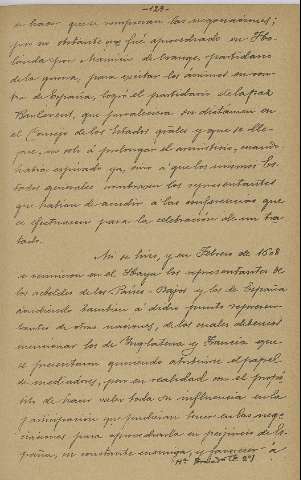 -129-
se hacer que se rompieran las negociaciones;
por no obstante que fué aprovechado en Ho-
landa por Mauricio de Orange, partidario
de la guerra, para excitar los ánimos en con-
tra de España, logró el partidario de la paz
Barlevent, que prevaleciera su dictamen en
el Consejo de los Estados grales y que se lle-
gase, no solo á prolongar el armisticio, cuando
había espirado ya, sino á que los mismos Es-
tados generales nombrasen los representantes
que habian de acudir á las conferencias que
se efectuasen para la celebración de un tra-
tado.
Así se hizo, y en Febrero de 1608
se reunieron en el Haya los representantes de
los rebeldes de los Países Bajos y los de España
acudiendo también á dicho punto represen-
tantes de otras naciones, de los cuales debemos
mencionar los de Inglaterra y Francia que
se presentaron queriendo atribuirse el papel
de mediadores, pero en realidad con el propó-
sito de hacer valer toda su influencia en la
participación que pudieran tener en las nego-
ciaciones para aprovecharla en perjuicio de Es-
paña, su constante enemiga, y favorecer á